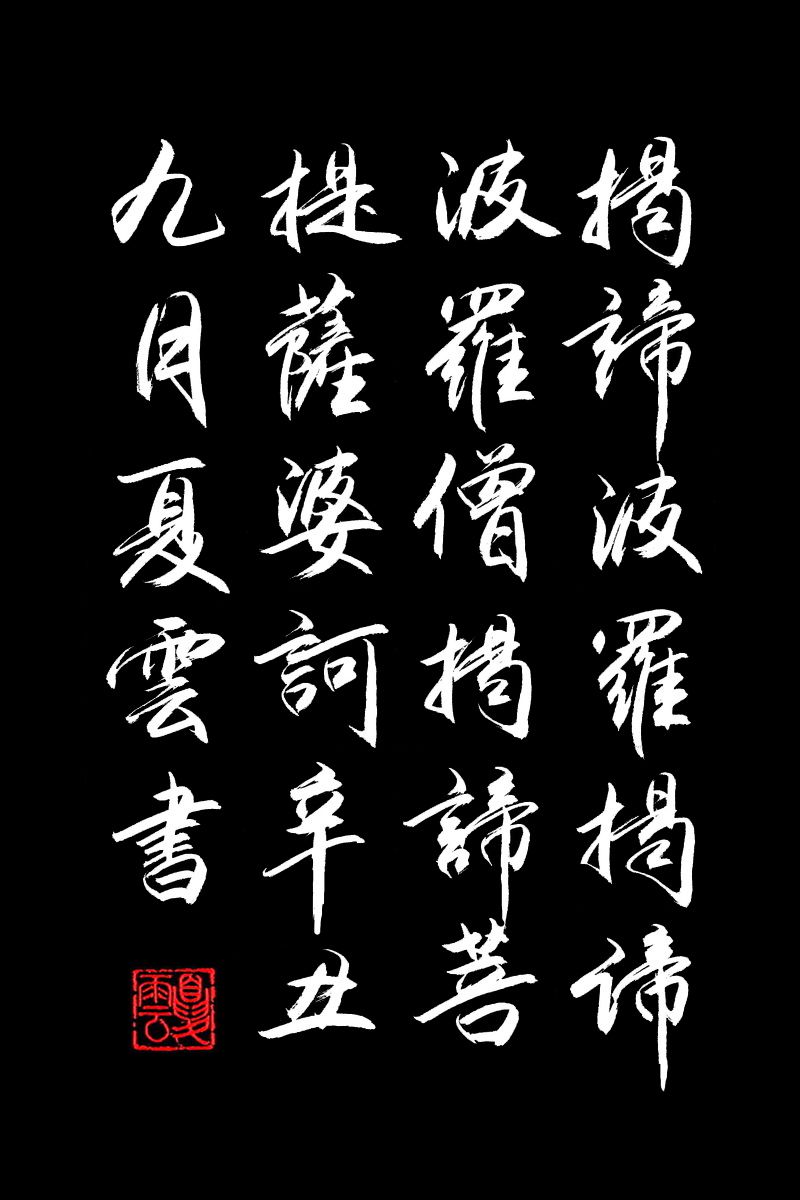 揭諦波羅揭谛
波羅僧揭諦菩
提薩婆訶辛丑
九月夏雲書
夏雲